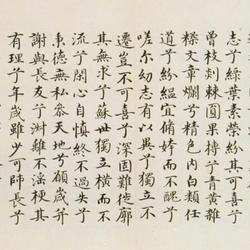 志兮綠葉素榮紛其可喜兮
曾枝剡棘圓果摶兮青黃雜
糅文章爛兮精色內白類任
道兮紛縕宜脩姱而不醜兮
嗟爾幼志有以異兮獨立不
遷豈不可喜兮深固難徙廓
其無求兮蘇世獨立橫而不
流兮閉心自慎終不失過兮
秉德無私參天地兮願歲并
謝與長友兮淑離不淫梗其
有理兮年歲雖少可師長兮